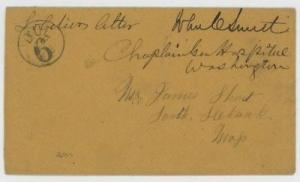 Soldiers letter
John C Smith
Chaplain Gen Hospital
Washington
DUE
6
Mr James Short
South
Mass